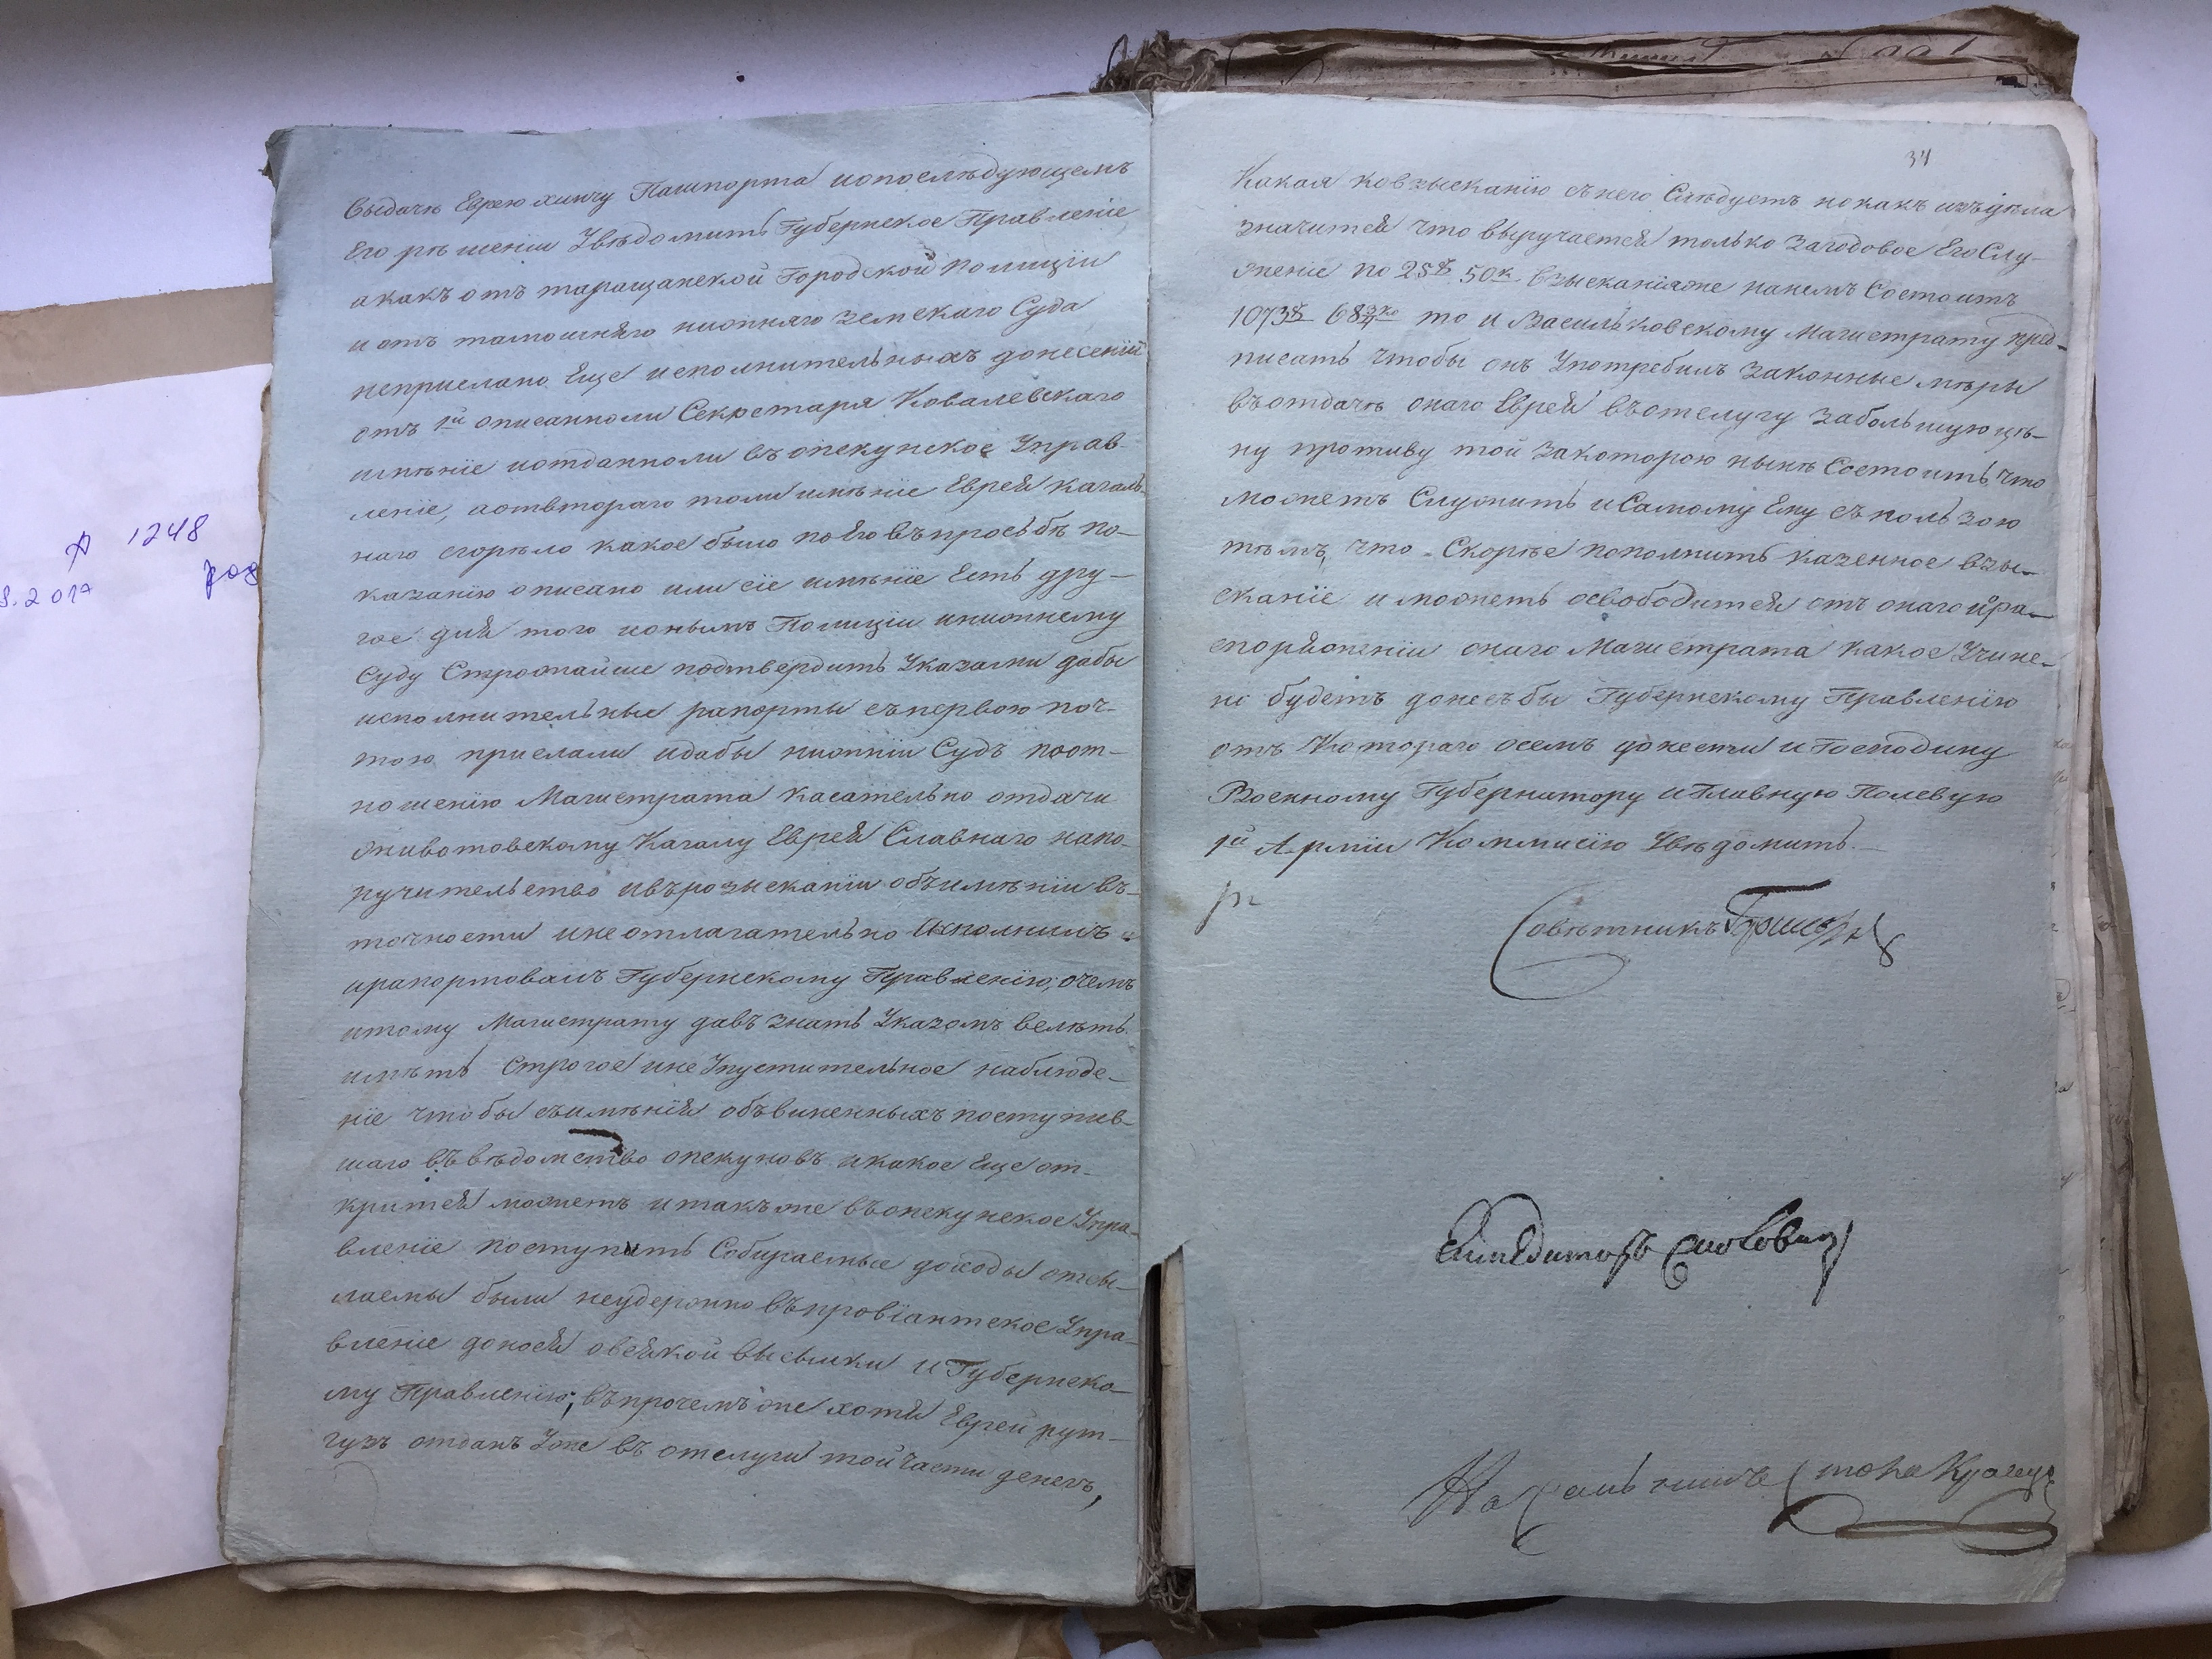 выдачѣ Еврею хинчу Пашпорта и опослѣдующемъ
Его рѣшеніи Увѣдомить Губернское Правленіе
а какъ отъ таращанской Городской Полиціи
и отъ тамошняго нижняго земскаго Суда
неприслано Еще исполнительныхъ донесеній
отъ 1й описанноли Секретаря Ковалевскаго
имѣніе и отданноли въ опекунское Управ-
леніе, а отвтораго толи имѣніе Еврея Кагаль-
наго сгорѣло какое было по Его въпросьбѣ по-
казанію описано или сіе имѣніе Есть дру-
гое для того и онымъ Полиціи и нижнему
Суду Строжайше подтвердить Указами дабы
исполнительные рапорты съ первою поч-
тою прислали и дабы нижній Судъ поот-
ношенію Магистрата касательно отдачи
животовскому Кагалу Еврея Славнаго напо-
ручительство и въ розысканіи объ имѣніи въ-
точности и не отлагательно исполнилъ и
и рапортовалъ Губернскому Правленію, о чемъ
и тому Магистрату давъ знать Указомъ велѣть
имѣть Строгое и не Упустительное наблюде-
ніе чтобы съ имѣнія объвиненныхъ поступив-
шаго въ вѣдомство опекуновъ и какое Еще от-
криться можетъ и такъ же въ опекунское Упра-
вленіе поступить Собираемые доходы отсы-
лаемы были неудержно въ провіантское Упра-
вленіе донося о всякой высылки и Губернско-
му Правленію; въ прочемъ же хотя Еврей рут-
гузъ отданъ Уже въ отслуги той части денегъ,
34
Какая ко взысканію съ него Слѣдуетъ но какъ изъ дѣла
значится что выручается только за годовое Его Слу-
женіе по 25р 50к взысканія же на немъ Состоитъ
1073р 68¾ко то и Васильковскому Магистрату пред-
писать чтобы онъ Употребилъ законные мѣры
въ отдачѣ онаго Еврея въ отслугу за большую цѣ-
ну противу той за которою нынѣ Состоитъ, что
можетъ Служить и Самому Ему съ пользою
тѣмъ, что Скорѣе пополнить казенное взы-
сканіе и можетъ освободится отъ онаго и ра-
споряженіи онаго Магистрата какое Учине-
но будетъ донесъ бы Губернскому Правленію
отъ Котораго осемъ донести и Господину
Военному Губернатору и Главную Полевую
1й Арміи Коммисію Увѣдомить.
Совѣтникъ
Експедиторъ
Столона